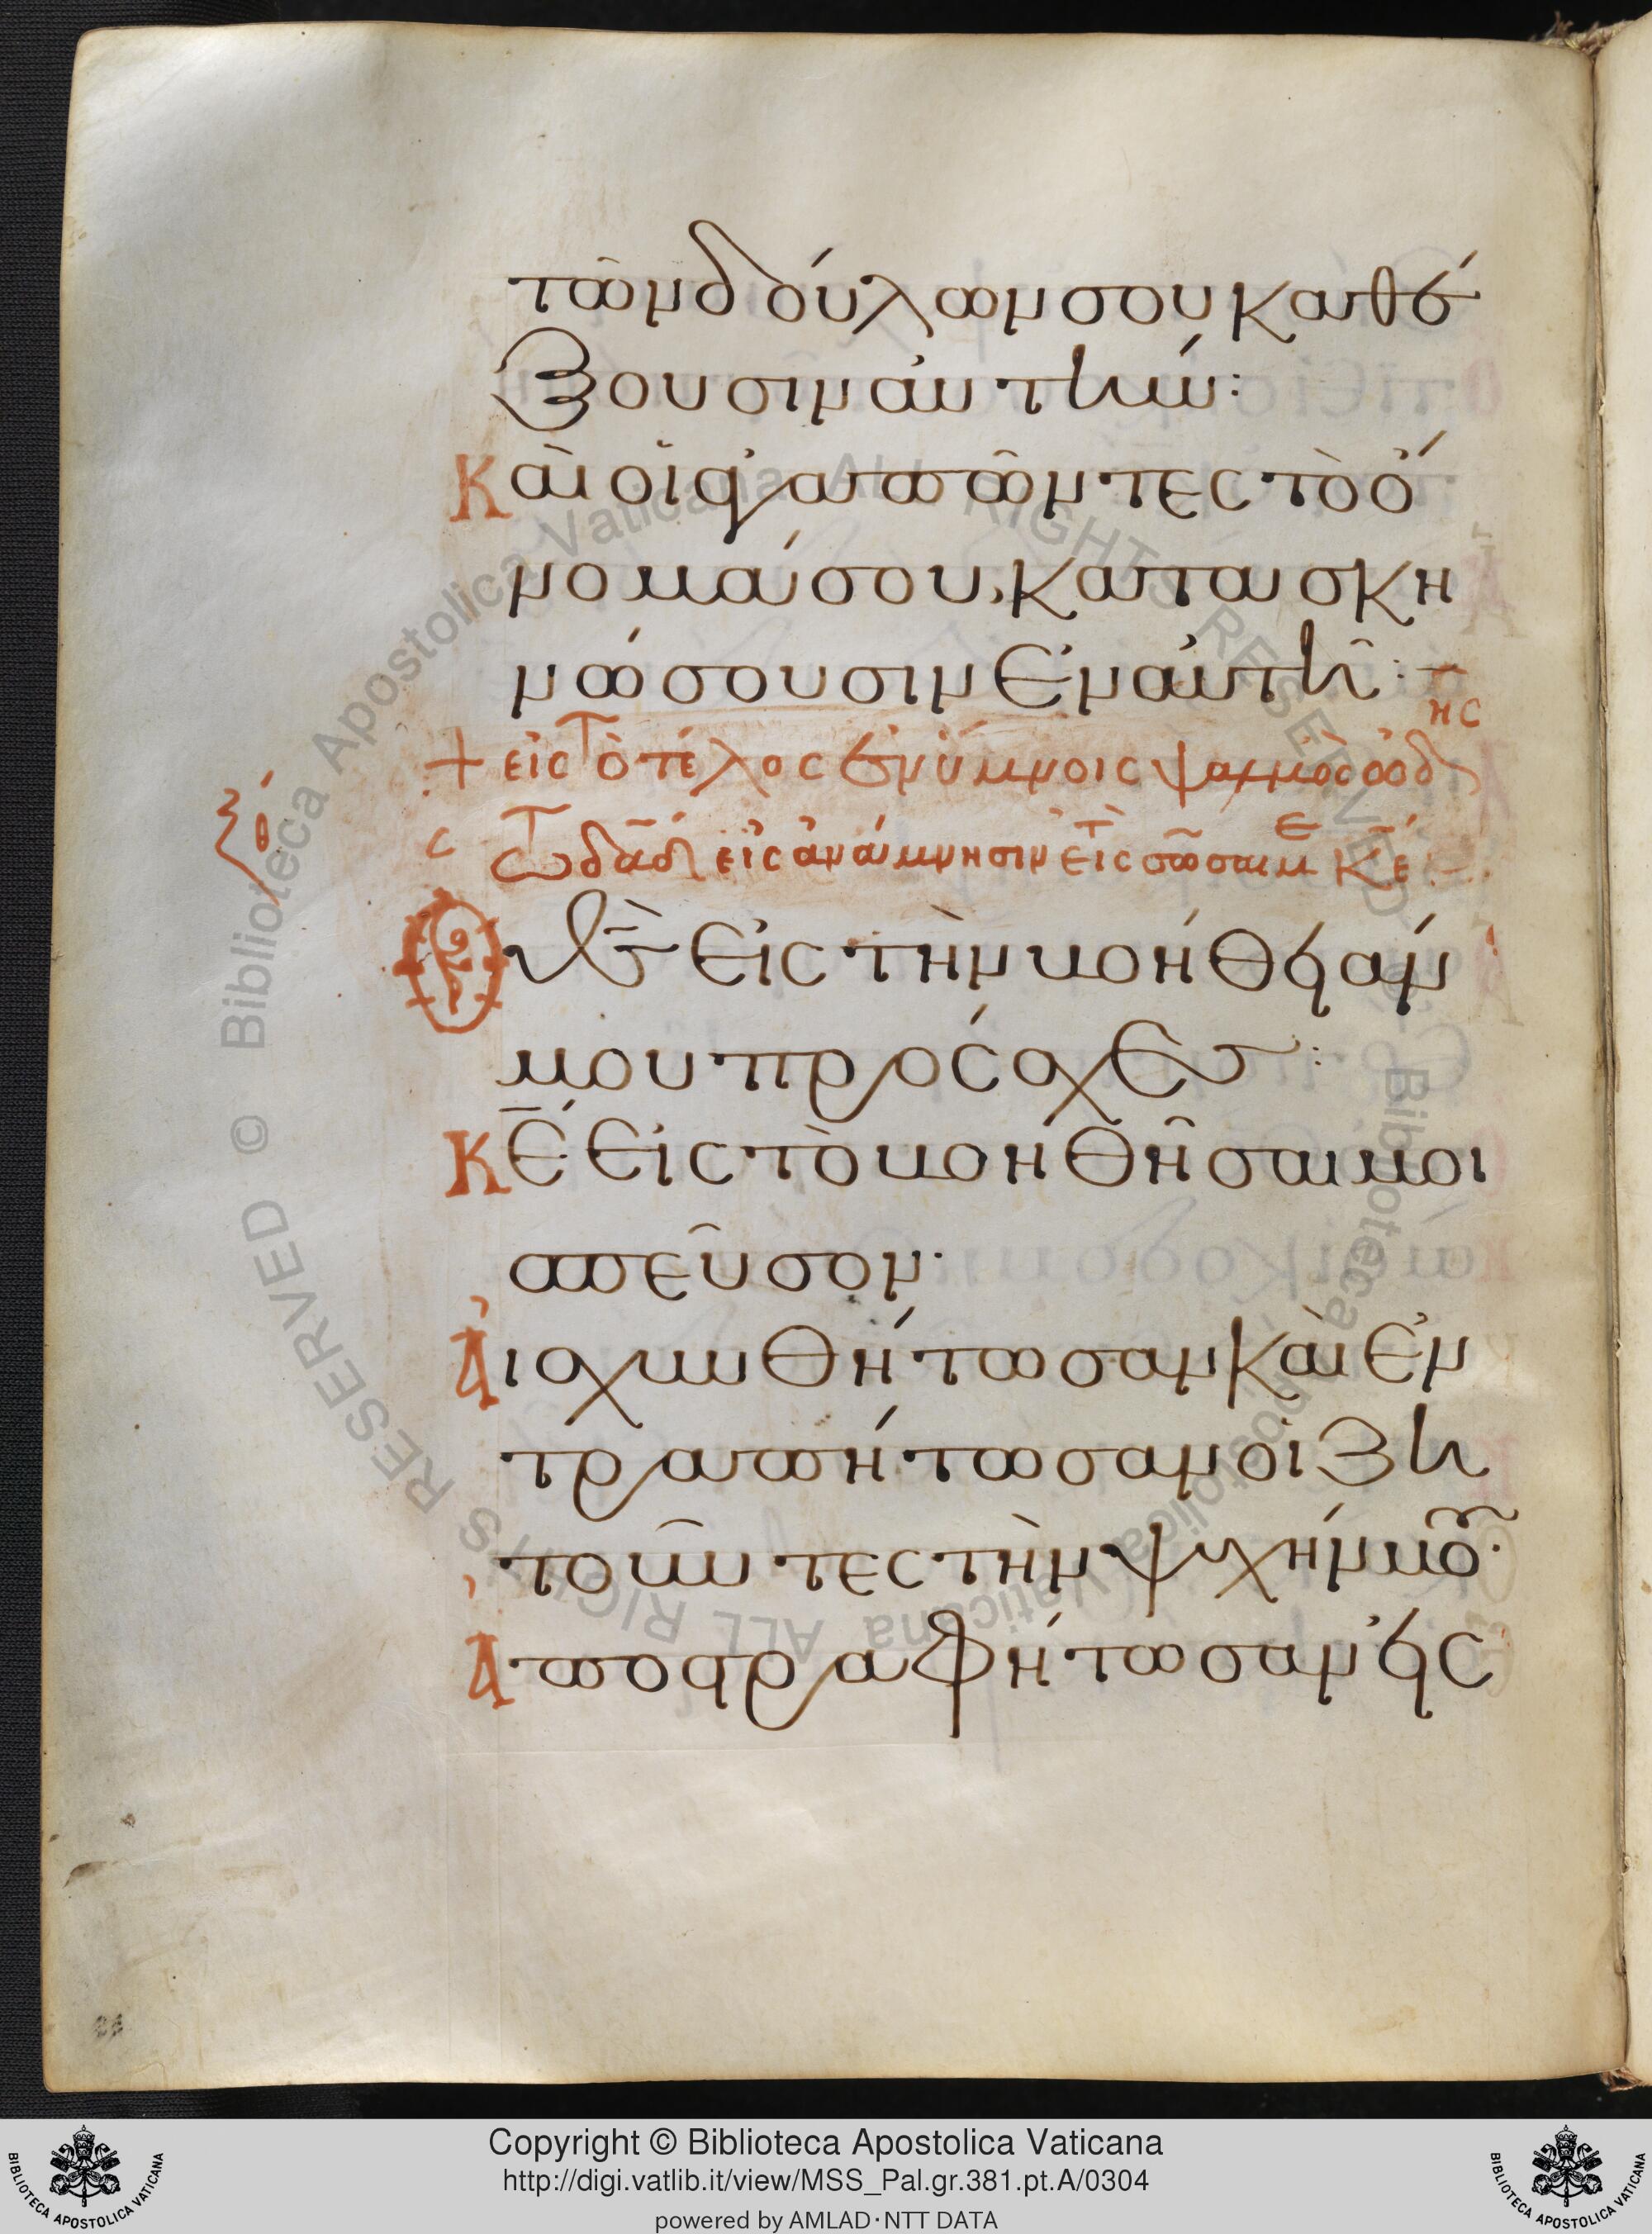 τῶν δούλων σου καθέ
ξουσιν αὐτήν:
Καὶ οἱ ἀγαπῶντες τὸ ὄ
νομά σου, κατασκη
νώσουσιν ἐν αὐτῇ:
+ εἰς τὸ τέλος ἐν ὕμνοις ψαλμὸς ᾠδῆς
ξθ
τῶ δαδ εἰς ἀνάμνησιν εἰς τὸ σῶσαί με κε
Ὁ θς εἰς τὴν βοήθειάν
μου πρόσχες:
Κε εἰς τὸ βοηθῆσαι μοι
σπεῦσον·
Αἰσχυνθήτωσαν καὶ ἐν
τραπήτωσαν οἱ ζη
τοῦντες τὴν ψυχήν μου·
Ἀποστραφήτωσαν εἰς
Copyright © Biblioteca Apostolica Vaticana
http://digi.vatlib.it/view/MSS_Pal.gr.381.pt.A/0304
powered by AMLAD·NTT DATA
BIBLIOTECA APOSTOLICA VATICANA
BIBLIOTECA APOSTOLICA VATICANA
© Biblioteca Apostolica Vaticana ALL RIGHTS RESERVED